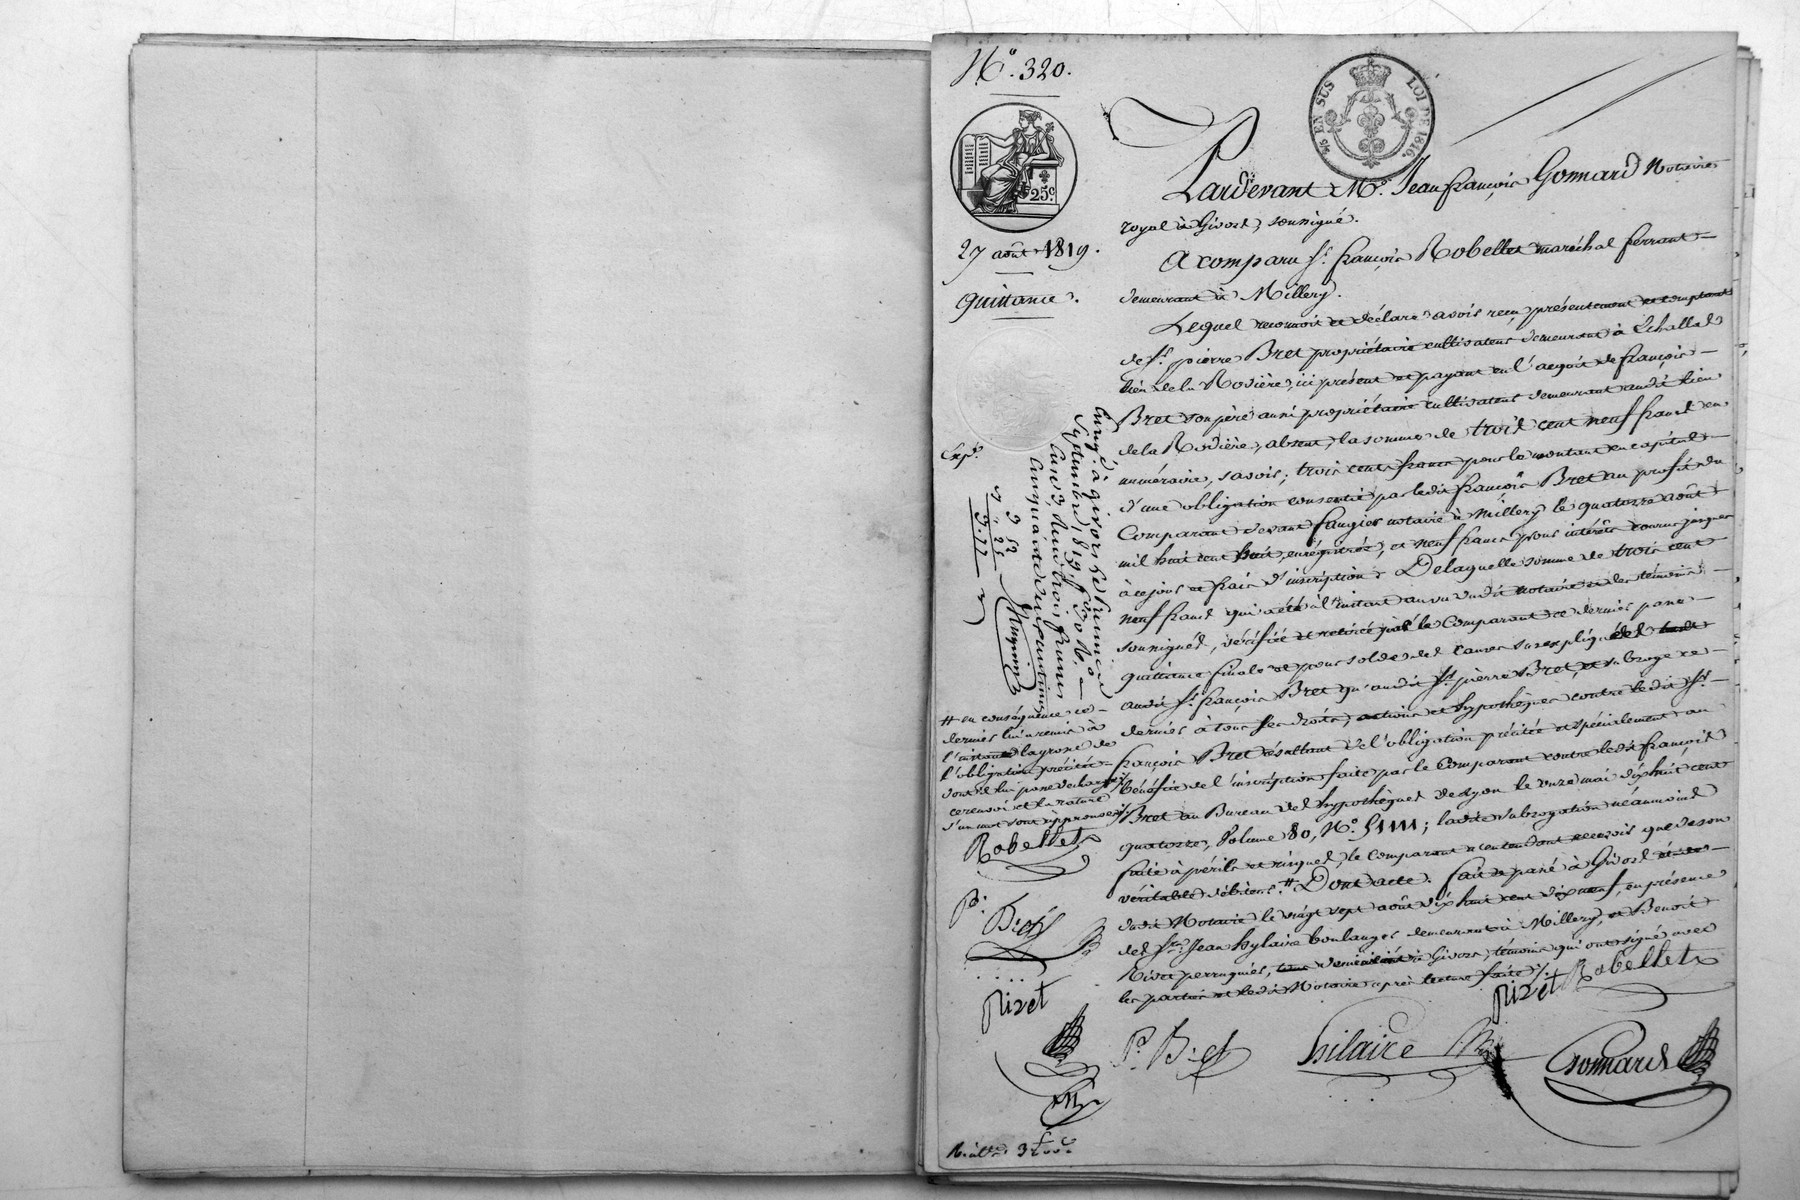 N.° 320.
5/10 EN SUS LOI DE 1816.
25 c.
27 août 1819.
Quittance.
Pardevant M.e Jean françois Gonnard Notaire
royal à Givors, soussigné.
A comparu S.r françois Robellet maréchal ferrant
demeurant à Millery.
Lequel reconnoit et déclare avoir reçu présentement et comptant
de S.r pierre Bret propriétaire cultivateur demeurant à Echallas
lieu de la Rodière, ici présent et payant en l'acquit de françois
Bret son père aussi propriétaire cultivateur demeurant audit lieu
de la Rodière, absent, la somme de trois cent neuf francs en
numéraire, savoir; trois cents francs pour le montant en capital
d'une obligation consentie par ledit françois Bret au profit du
Comparant devant faugier notaire à Millery le quatorze août
mil huit cent huit, enrégistrée, et neuf francs pour intérêts courus jusques
à ce jour et frais d'inscription. De laquelle somme de trois cent
neuf francs qui a été à l'instant au vu dudit notaire et des témoins
soussignés, vérifiée et retirée par le Comparant ce dernier passe
quittance finale et pour solde des causes susexpliquées
audit S.r françois Bret qu'audit S.r pierre Bret, et subroge ce
dernier à tous ses droits, actions et hypothèques contre ledit S.r
françois Bret résultant de l'obligation précitée et spécialement au
bénéfice de l'inscription faite par le Comparant contre ledit françois
Bret au Bureau des hypothèques de Lyon le onze mai dixhuit cent
quatorze, Volume 80, N.°; ladite subrogation néanmoins
faite à périls et risques, le comparant n'entendant recevoir que de son
véritable débiteur. # Dont acte. fait et passé à Givors
dudit Notaire le vingt sept août dix huit cent dix neuf, en présence
des S.rs Jean hylaire boulanger demeurant à Millery, et Benoit
Rivet perruquier, demeurant à Givors, témoins qui ont signé avec
les parties et ledit Notaire après lecture faite ./.
Rivet Robellet
P.e Bret hilaire Gonnard
Exp.é
Enregé à givors le premier
Septembre 1819 f.°
Reçu trois francs
cinquante centimes
# en conséquence ce
dernier lui a remis à
l'instant la grosse de
l'obligation précitée
dont il lui passe décharge
ce renvoi et la rature
d'un mot sont approuvés ./.
Robellet
P.e Bret
Rivet